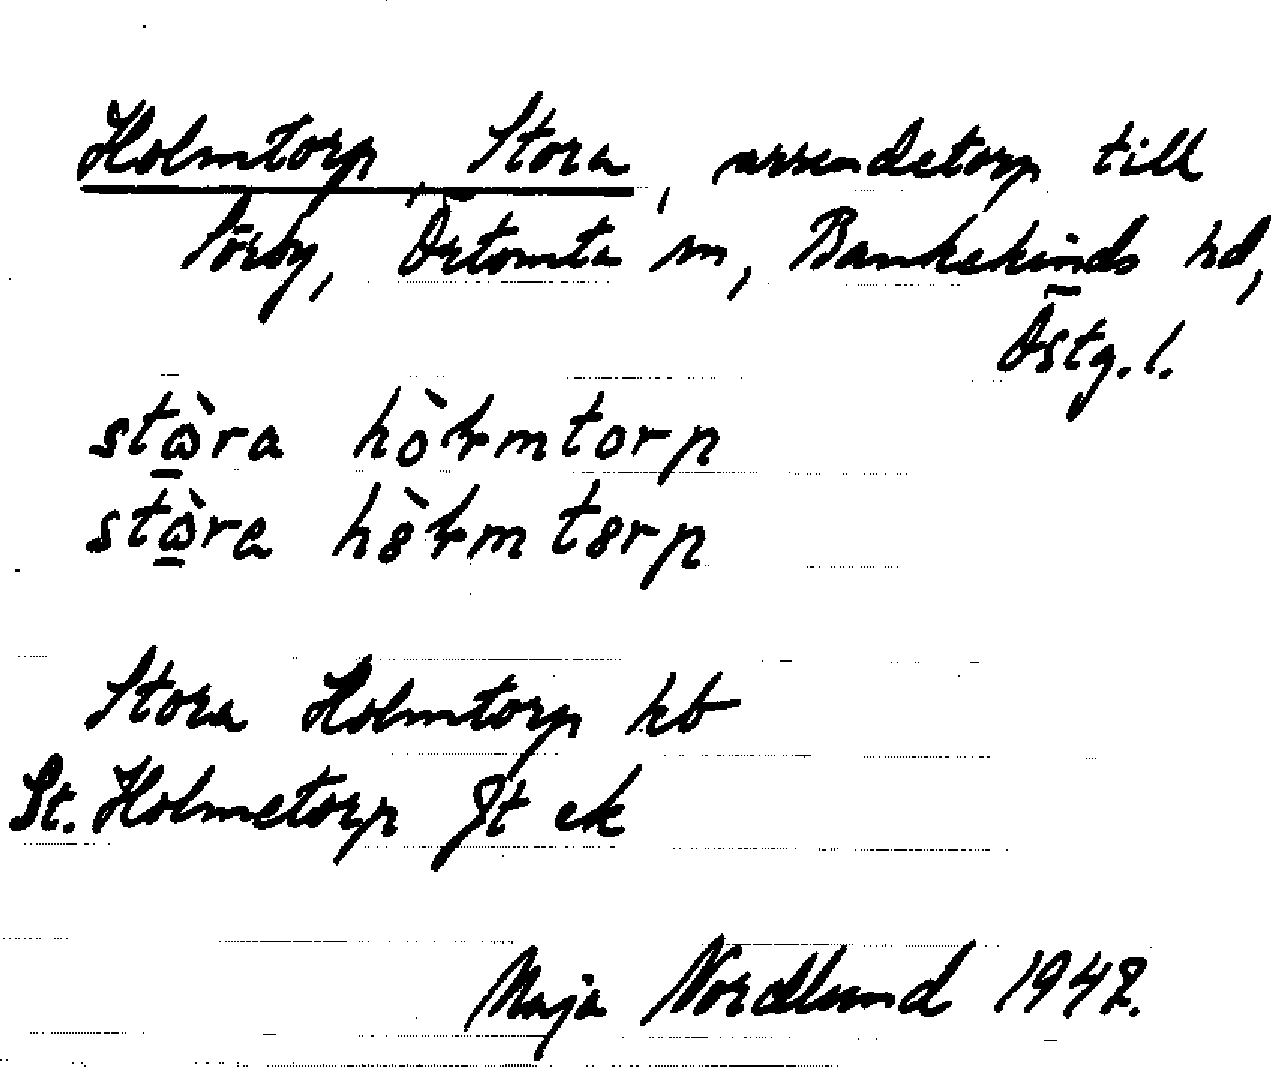 Holmtorp, Stora, arrendetorp till
Sörby, Örtomta sn, Bankekinds hd,
Östg. l.
stὼ̲ra hòł̵mtorp
stὼ̲ra hɞ̀ł̵mtɞrp
Stora Holmtorp kb
St. Holmetorp Jt ek
Maja Nordlund 1947.